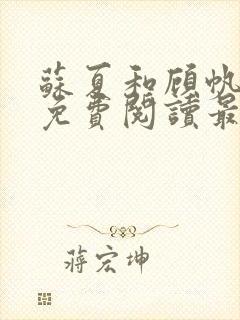 蘇夏和顾帆
免費閱讀最
蔣宏坤